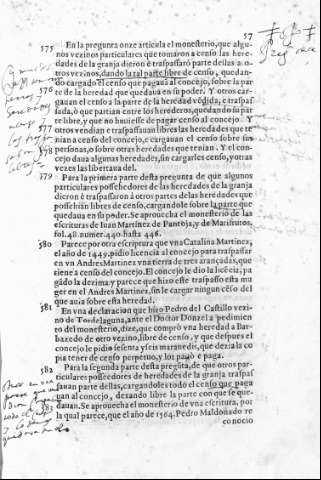 57
575 En la pregunta onze articula el monesterio, que algunos
vezinos particulares que tomaron a censo las heredades
de la granja dieron e traspassaró parte dellas a otros
vezinos, dando la tal parte libre de censo, quedando
cargado el censo que pagauá al concejo, sobre la parte
de la heredad que quedaua en su poder. Y otros cargauan
el censo a la parte de la heredad védida, e traspassada,
ò que partian entre los herederos, quedando su parte
libre, y que no huuiesse de pagar censo al concejo. Y
577 otros vendian e traspassauan libres las heredades que tenian
a censo del concejo, e cargauan el censo sobre sus
578 personas, o sobre otras heredades que tenian. Y el concejo
daua algunas heredades, sin cargarles censo, y otras
vezes las libertaua del.
579 Para la primera parte desta pregunta de que algunos
particulares possehedores de las heredades de la granja
dieron è traspassaron à otros partes de las heredades que
possehian libres de censo, cargandole sobre la parte que
quedaua en su poder. Se aprouecha el monesterio de las
escrituras de Iuan Martinez de Pantoja, y de Marifrutos,
fol. 48. numer. 440. hasta 446.
580 Parece por otra escriptura que vna Catalina Martinez,
el año de 1449. pidio licencia al concejo para traspassar
en vn Andres Martinez vna tierra de tres arançadas, que
tiene a censo del concejo. El concejo le dio la licécia, pagádo
la dezima y parece que hizo este traspasso esta muger
en el Andres Martinez, sin le cargar ningun céso del
que auia sobre esta heredad.
581 En vna declaracion que hizo Pedro del Castillo vezino
de Tordelaguna, ante el Doctor Donzel a pedimiento
del monesterio, dize, que compró vna heredad a Barbazedo
de otro vezino, libre de censo, y que despues el
concejo le pidio sesenta y seis marauedis, que dezia los copia
tener de censo perpetuo, y los pagò e paga.
582 Para la segunda parte desta pregúta, de que otros particulares
posseedores de heredades de la granja traspassauan
parte dellas, cargandoles todo el censo que pagauan
al concejo, dexando libre la parte con que se quedauan.
583 Se aprouecha el monesterio de vna escritura, por
la qual parece, que el año de 1504. Pedro Maldonado reconocio